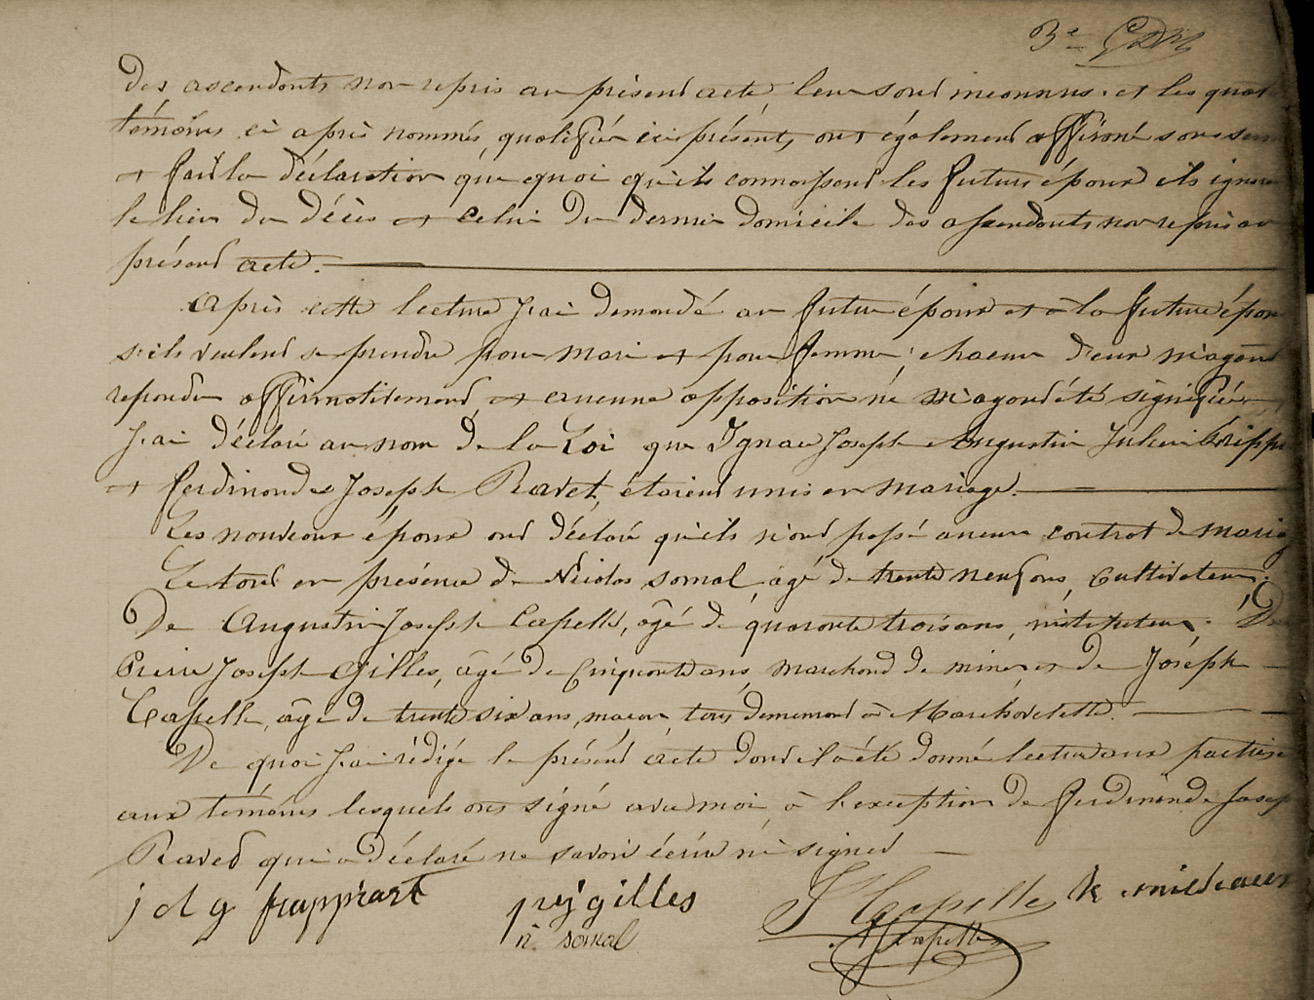 3e
des ascendants non repris au présent acte, leur sont inconnus. et les quat
témoins ci après nommés, qualifiés ici présents, ont également affirmé sous
et fait la déclaration que quoi qu'ils connaissent les futurs époux ils ignore
le lieu du décès et celui du dernier domicile des assendants non repris au
présent acte.
Après cette lecture j'ai demandé au futur époux et à la future épou
s'ils veulent se prendre pour mari et pour femme; chacun d'eux m'ayant
repondu affirmativement, et aucune opposition ne m'ayant été signifiée,
j'ai déclaré au nom de la Loi que Ignace Joseph Augustin Julien
et Ferdinande Joseph Ravet, étaient unis en mariage.
Les nouveaux époux ont déclaré qu'ils n'ont passé aucun contrat de mariag
Le tout en présence de Nicolas somal, âgé de trente neuf ans, cultivateur.
De Augustin Joseph Capelle, âgé de quarante trois ans, instituteur. De
Pierre Joseph Gilles, âgé de cinquante ans, marchand de mines et de Joséph
Capelle, âgé de trente six ans, maçon tous demeurant à Marchovelette.
De quoi j'ai rédigé le présent acte dont il a été donné lecture aux parties
aux témoins lesquels ont signé avec moi, à l'exception de Ferdinande Josep
Raved qui a déclaré ne savoir écrire ni signer
j d g frappiart pr j gilles J Capelle
n. somal A J Capelle